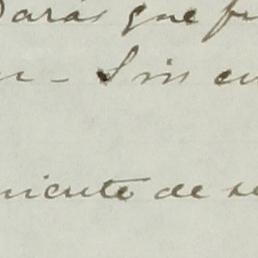 Darás que fu
n - Sin en
niente de se